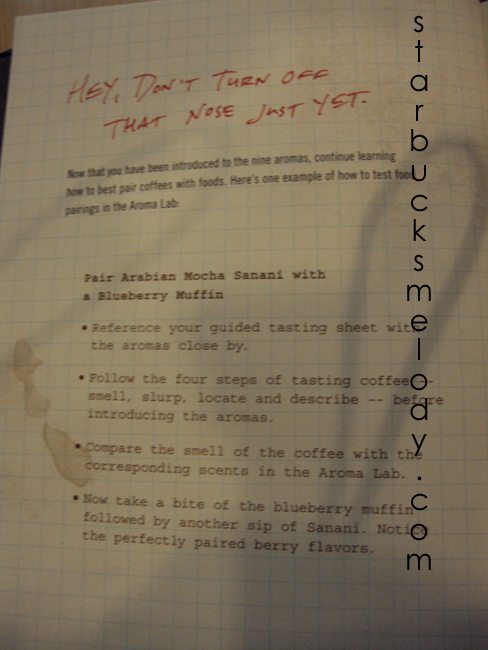 HEY, DON'T TURN OFF
THAT NOSE JUST YET.
Now that you have been introduced to the nine aromas, continue learning
how to best pair coffees with foods. Here's one example of how to test food
pairings in the Aroma Lab:
Pair Arabian Mocha Sanani with
a Blueberry Muffin
• Reference your guided tasting sheet with
the aromas close by.
• Follow the four steps of tasting coffee --
smell, slurp, locate and describe -- before
introducing the aromas.
• Compare the smell of the coffee with the
corresponding scents in the Aroma Lab.
• Now take a bite of the blueberry muffin
followed by another sip of Sanani. Notice
the perfectly paired berry flavors.
starbucksmelody.com